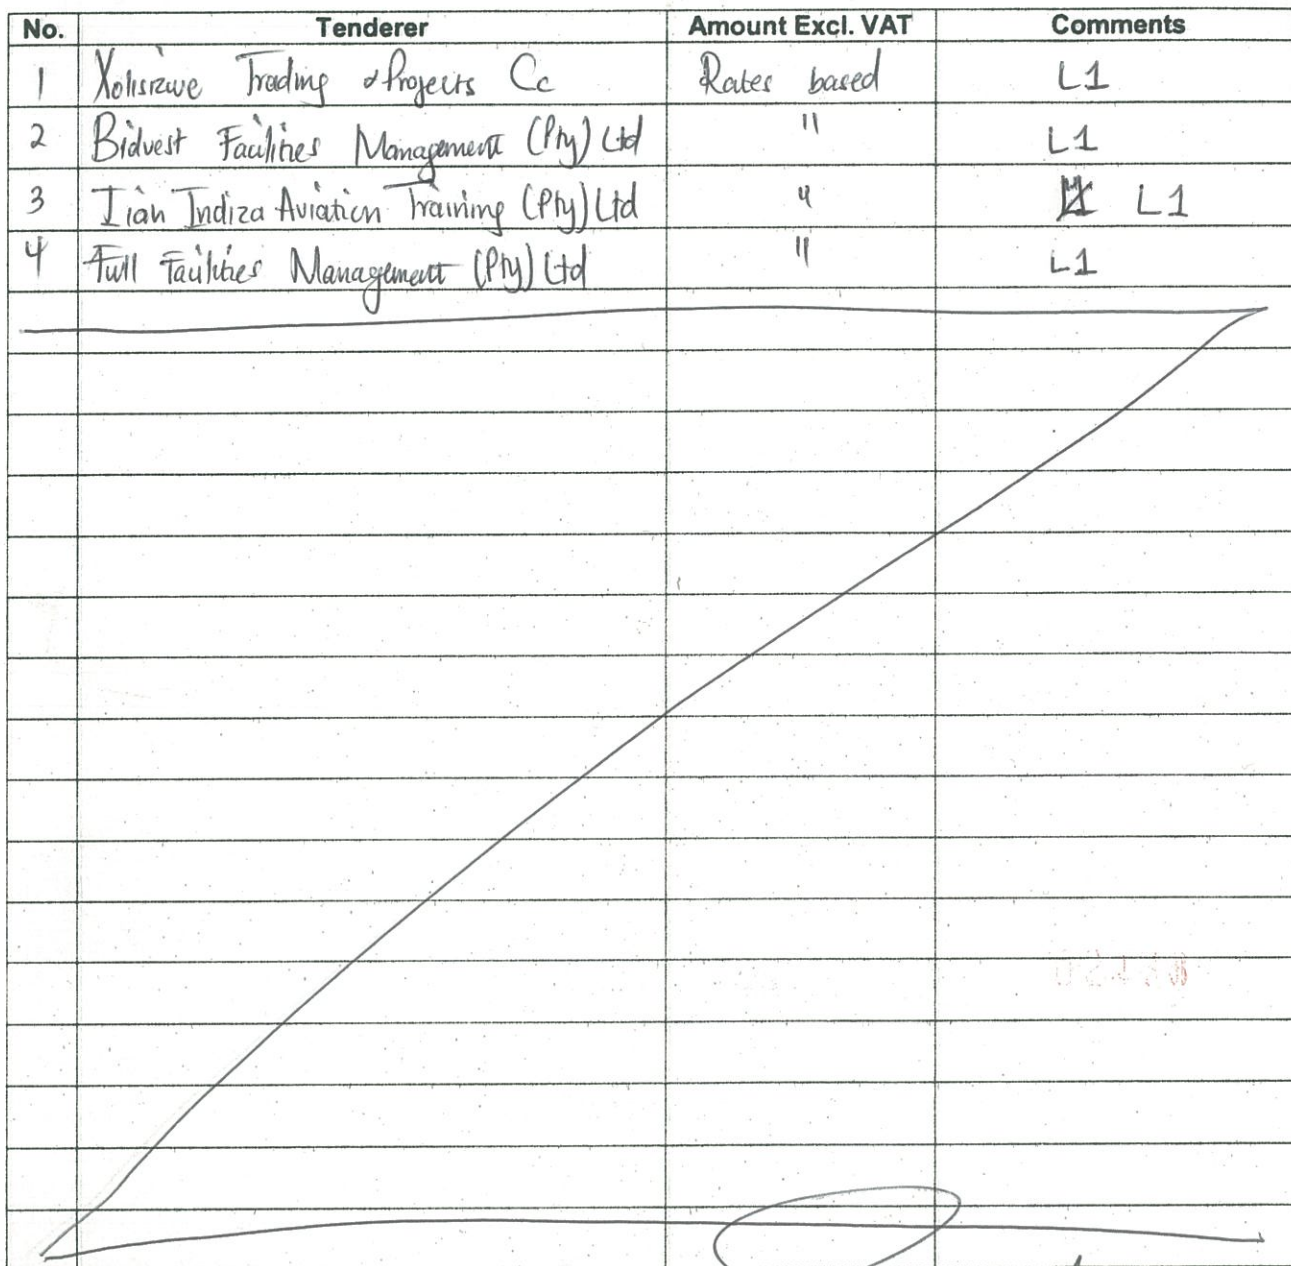 No. Tenderer Amount Excl. VAT Comments
1 Xolisizwe Trading & Projects Cc Rates based L1
2 Bidvest Facilities Management (Pty) Ltd " L1
3 Indiza Aviation Training (Pty) Ltd " L1
4 Full Facilities Management (Pty) Ltd " L1